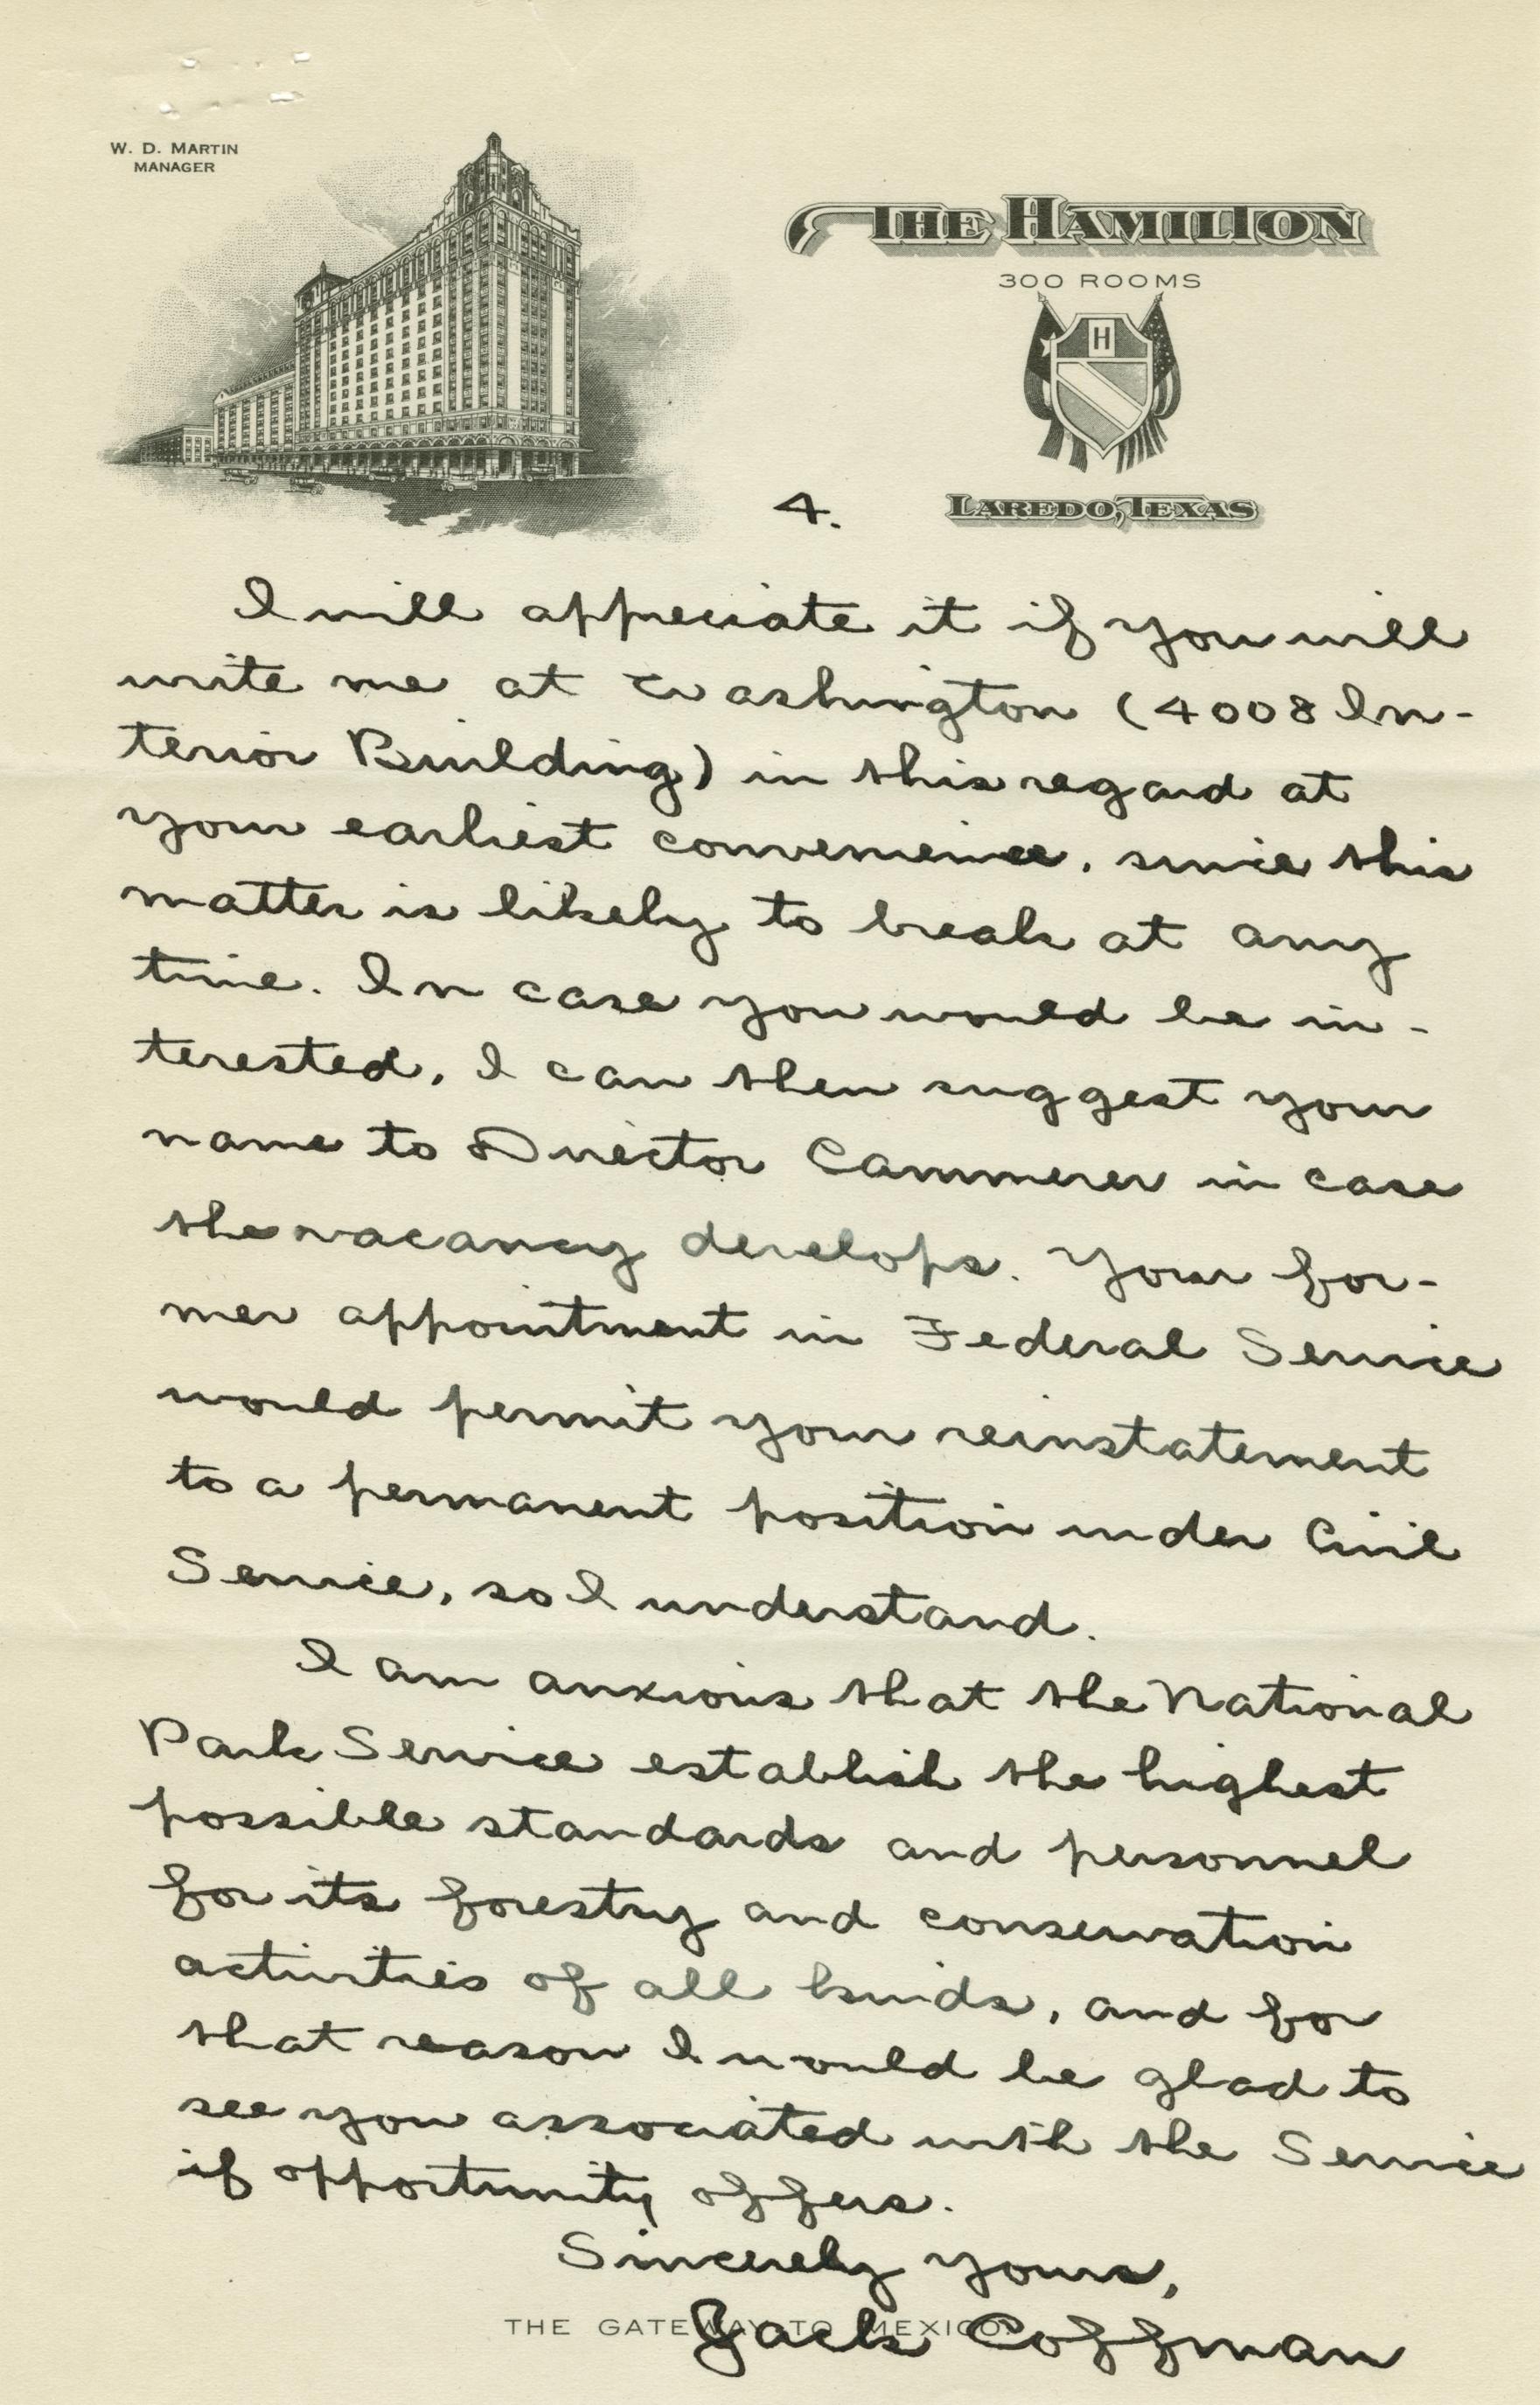 W. D. MARTIN
MANAGER
THE HAMILTON
300 ROOMS
H
LAREDO, TEXAS
4.
I will appreciate it if you will
write me at Washington (4008 In-
terior Building) in this regard at
your earliest convenience, since this
matter is likely to break at any
time. In case you would be in-
terested, I can then suggest your
name to Director Cammerer in case
the vacancy develops. Your for-
mer appointment in Federal Service
would permit your reinstatement
to a permanent position under Civil
Service, so I understand.
I am anxious that the National
Park Service establish the highest
possible standards and personnel
for its forestry and conservation
activities of all kinds, and for
that reason I would be glad to
see you associated with the Service
if opportunity offers.
Sincerely yours,
Jack Coffman
THE GATEWAY TO MEXICO